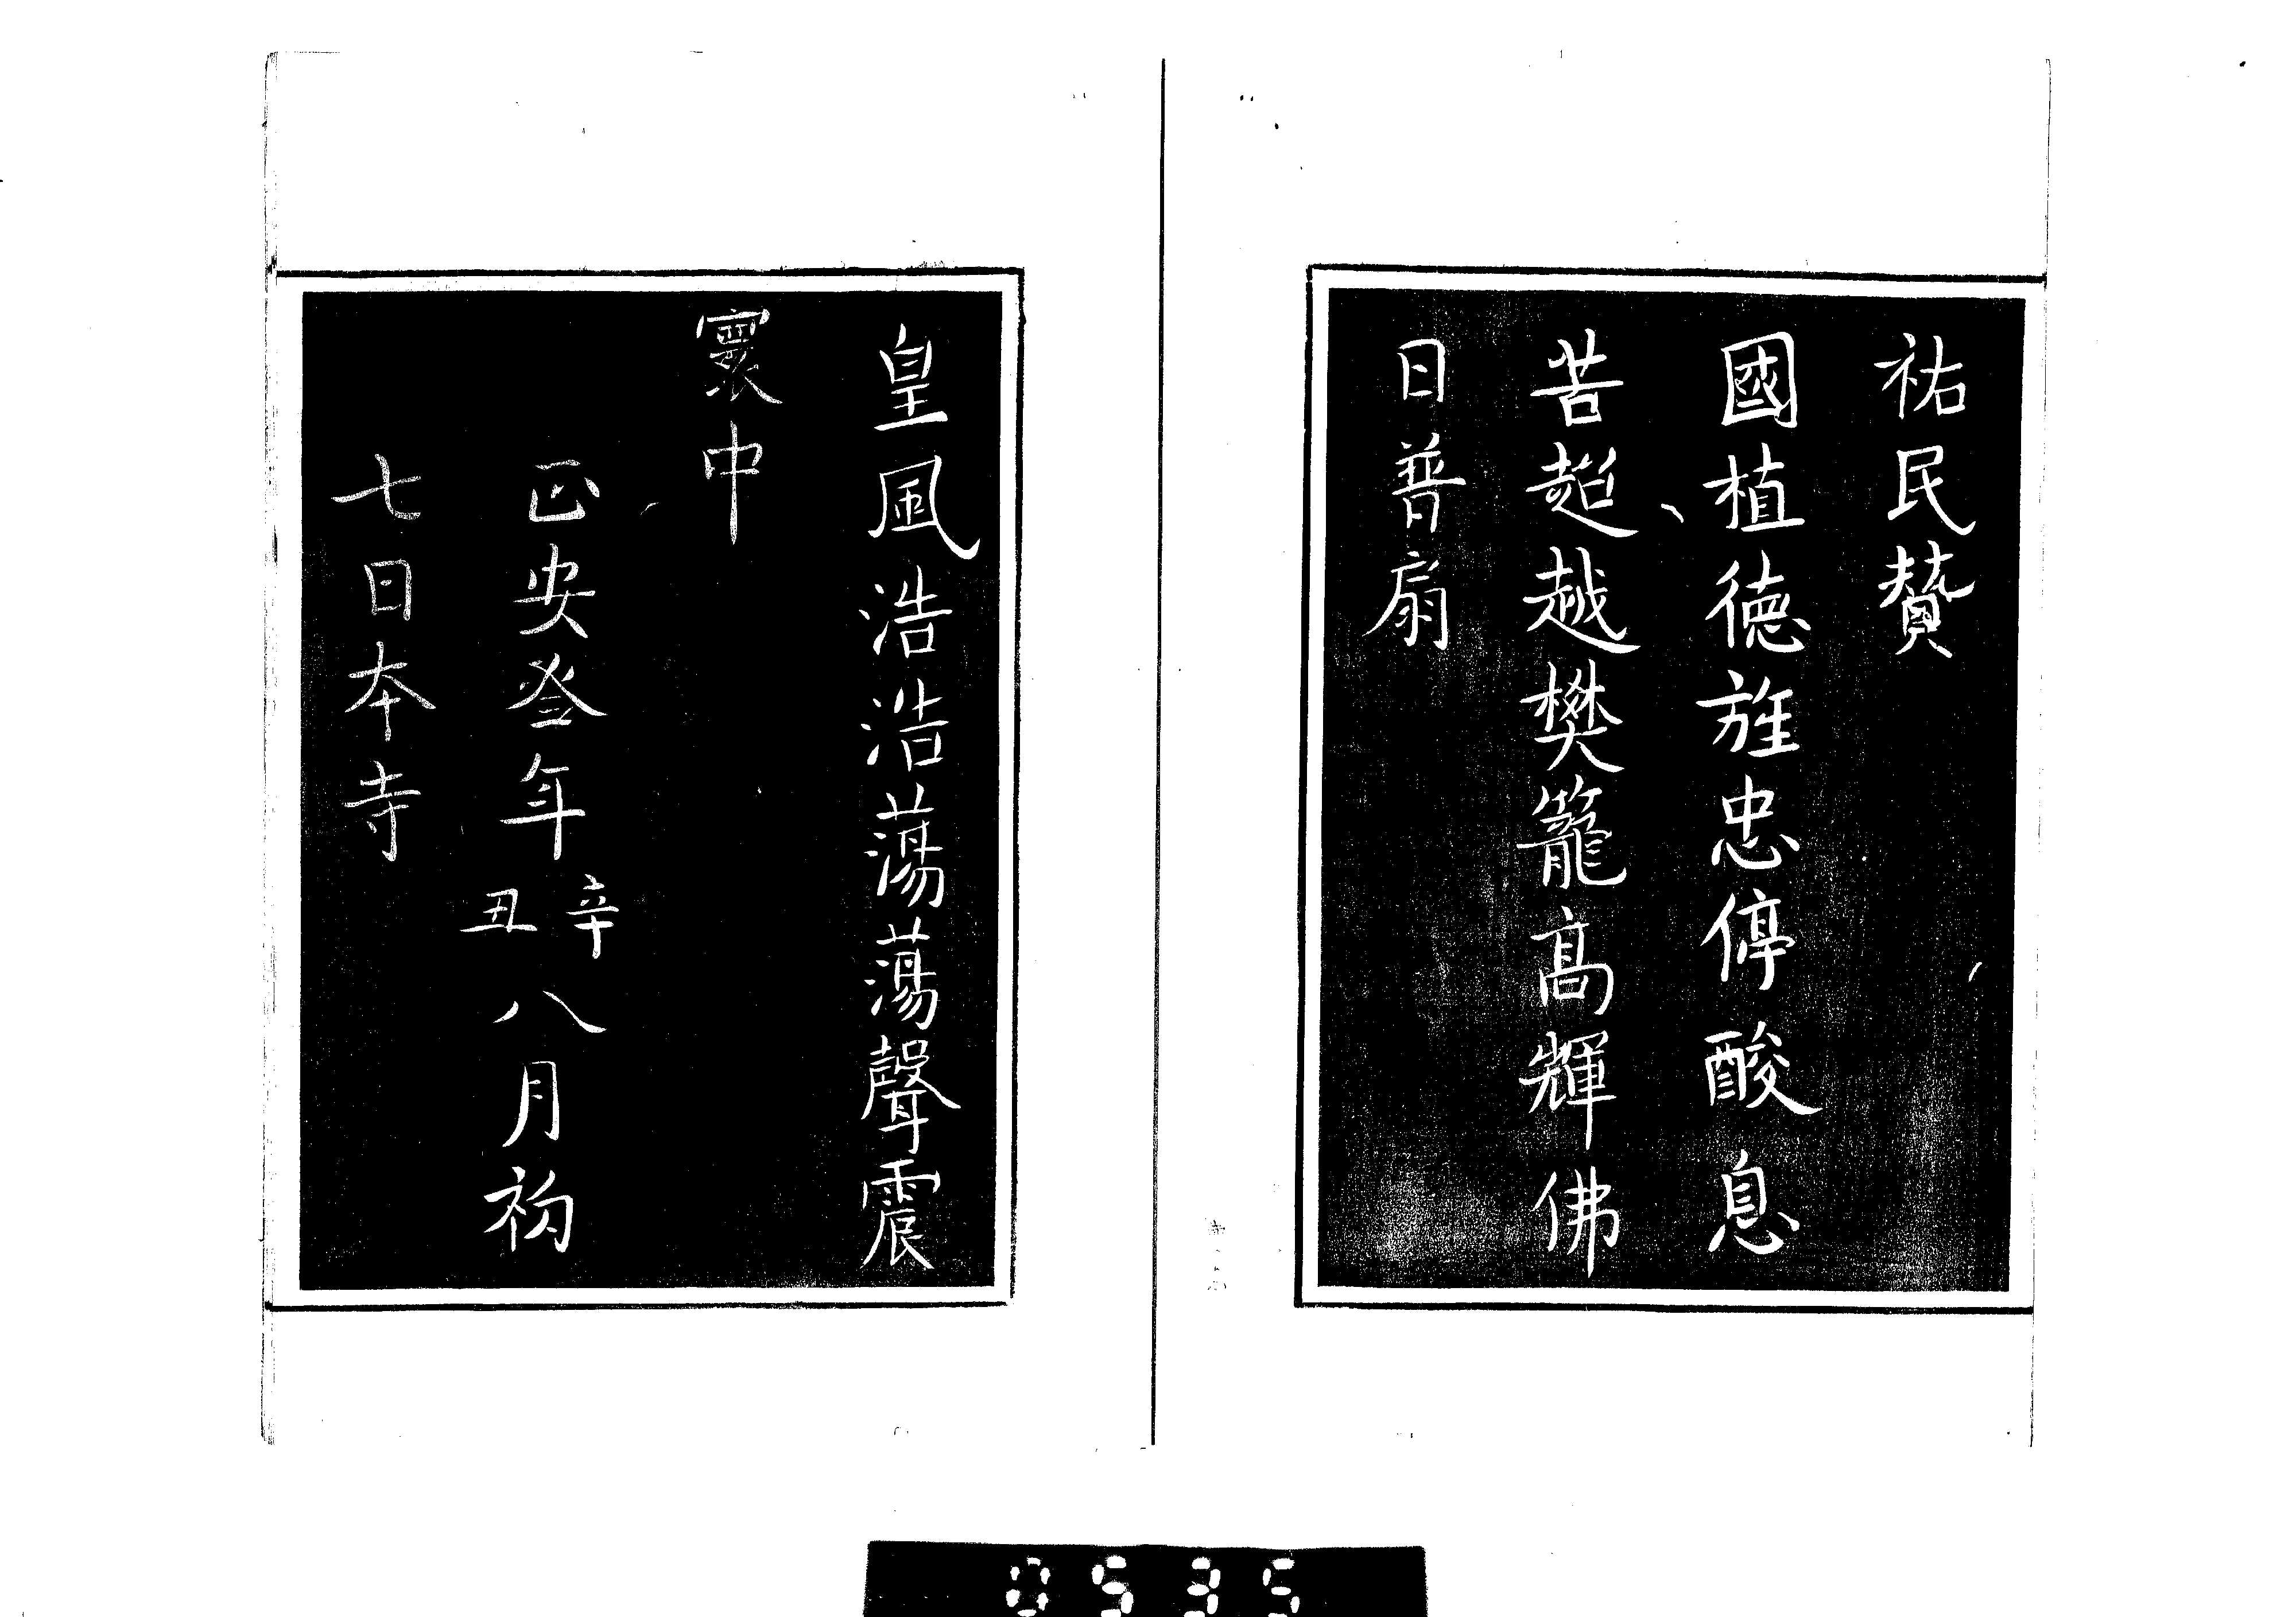 祐民贊
國植德旌忠停酸息
苦超越樊籠高輝佛
日普扇
皇風浩浩蕩蕩聲震
寰中
正安叄年辛丑八月初
七日本寺
0535